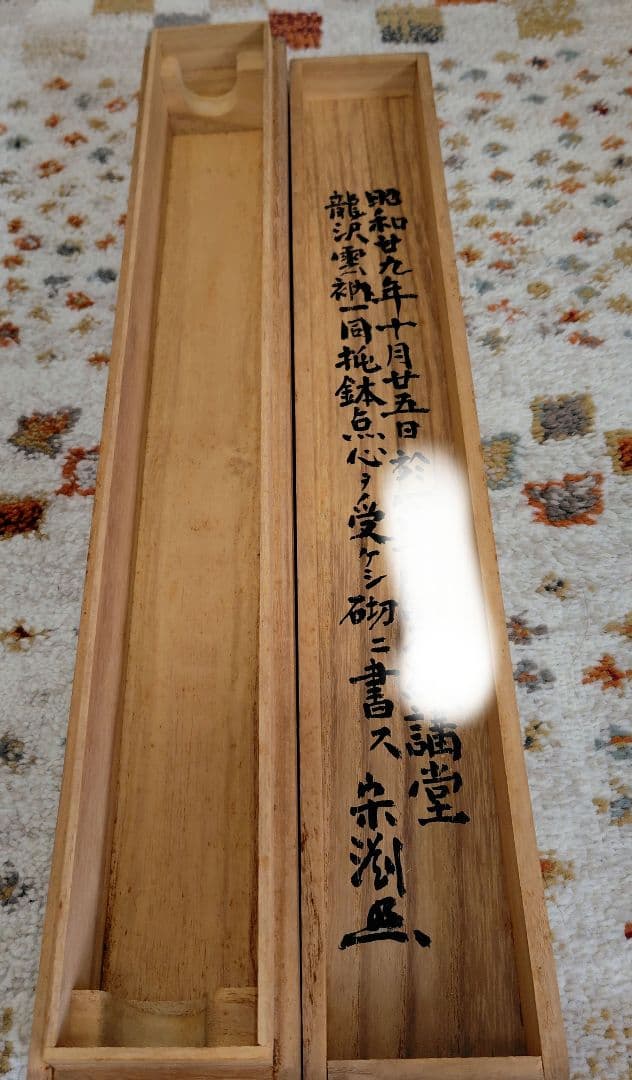 昭和廿九年十月廿五日 於 講堂
龍沢雲衲一同托鉢点心ヲ受ケシ砌ニ書ス 宋淵